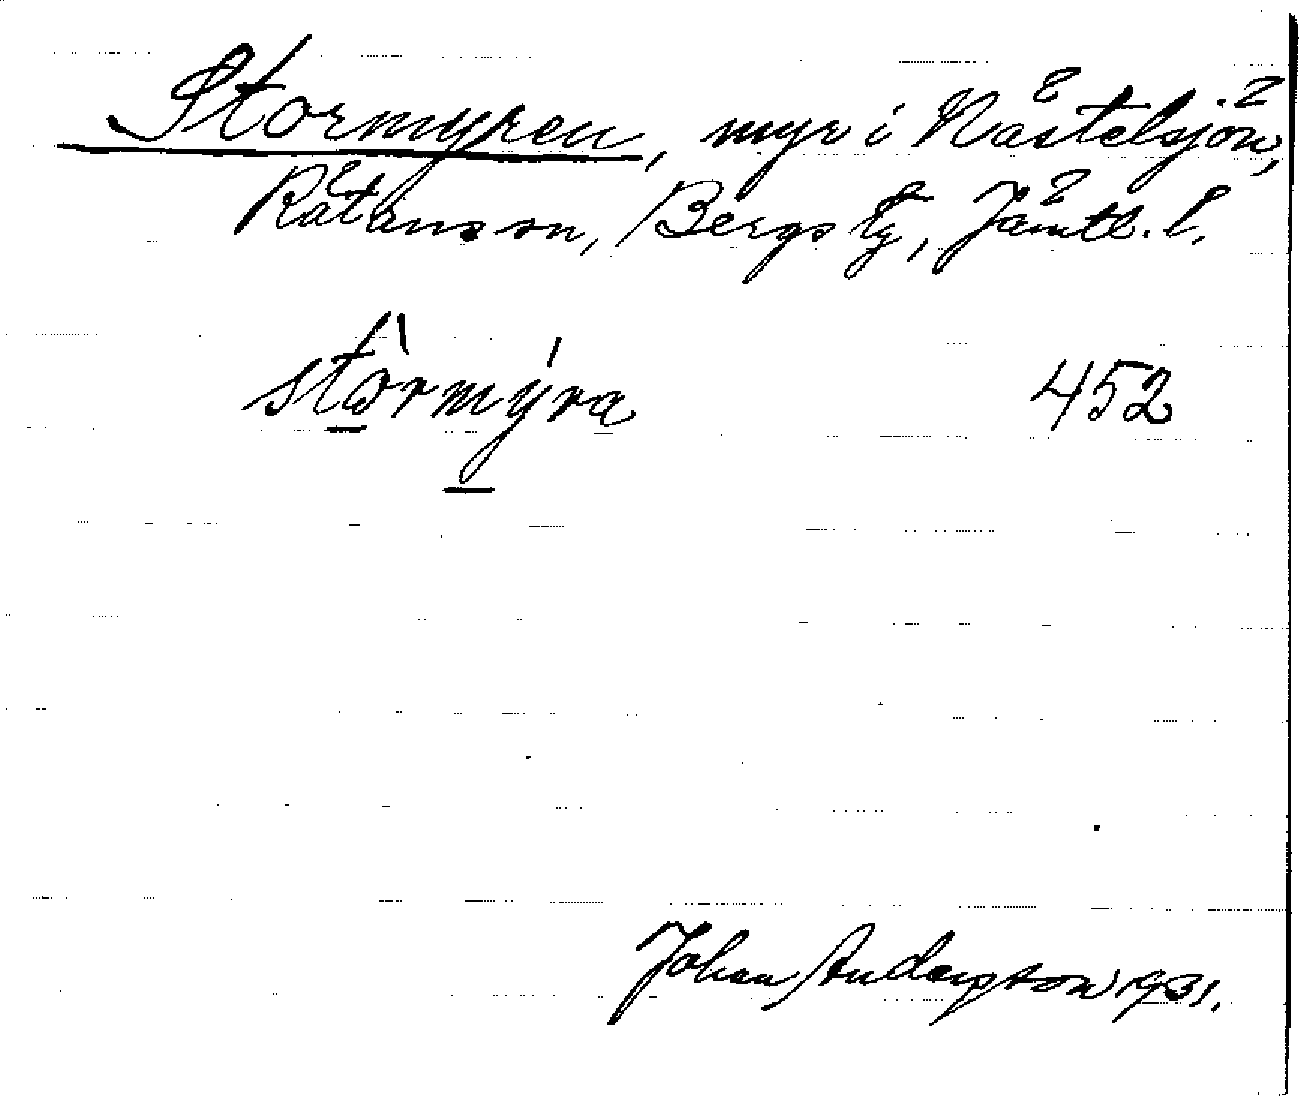 Stormyren, myr i Nästelsjön,
Rätans sn, Bergs tg, Jämtl. l.
stòrmýra 452
Johan Anderson 1931.